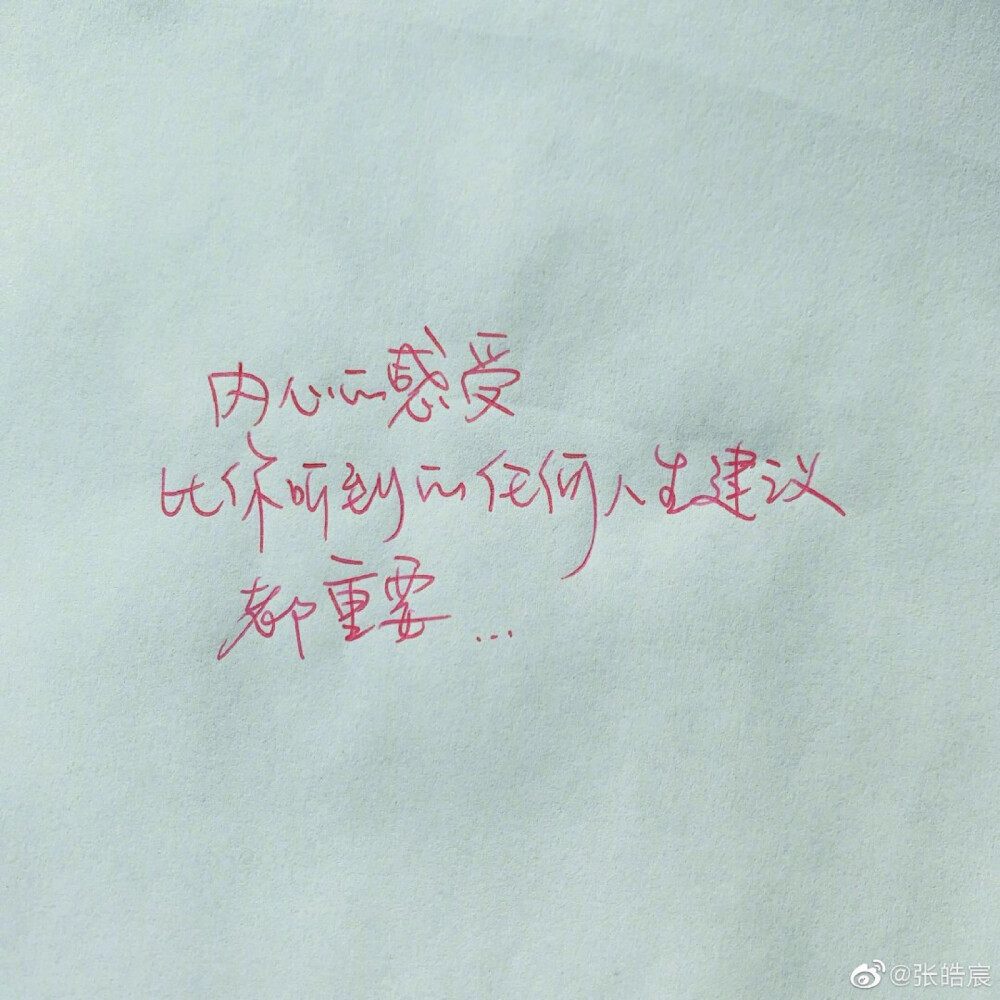 内心的感受
比你听到的任何人生建议
都重要...
@张皓宸